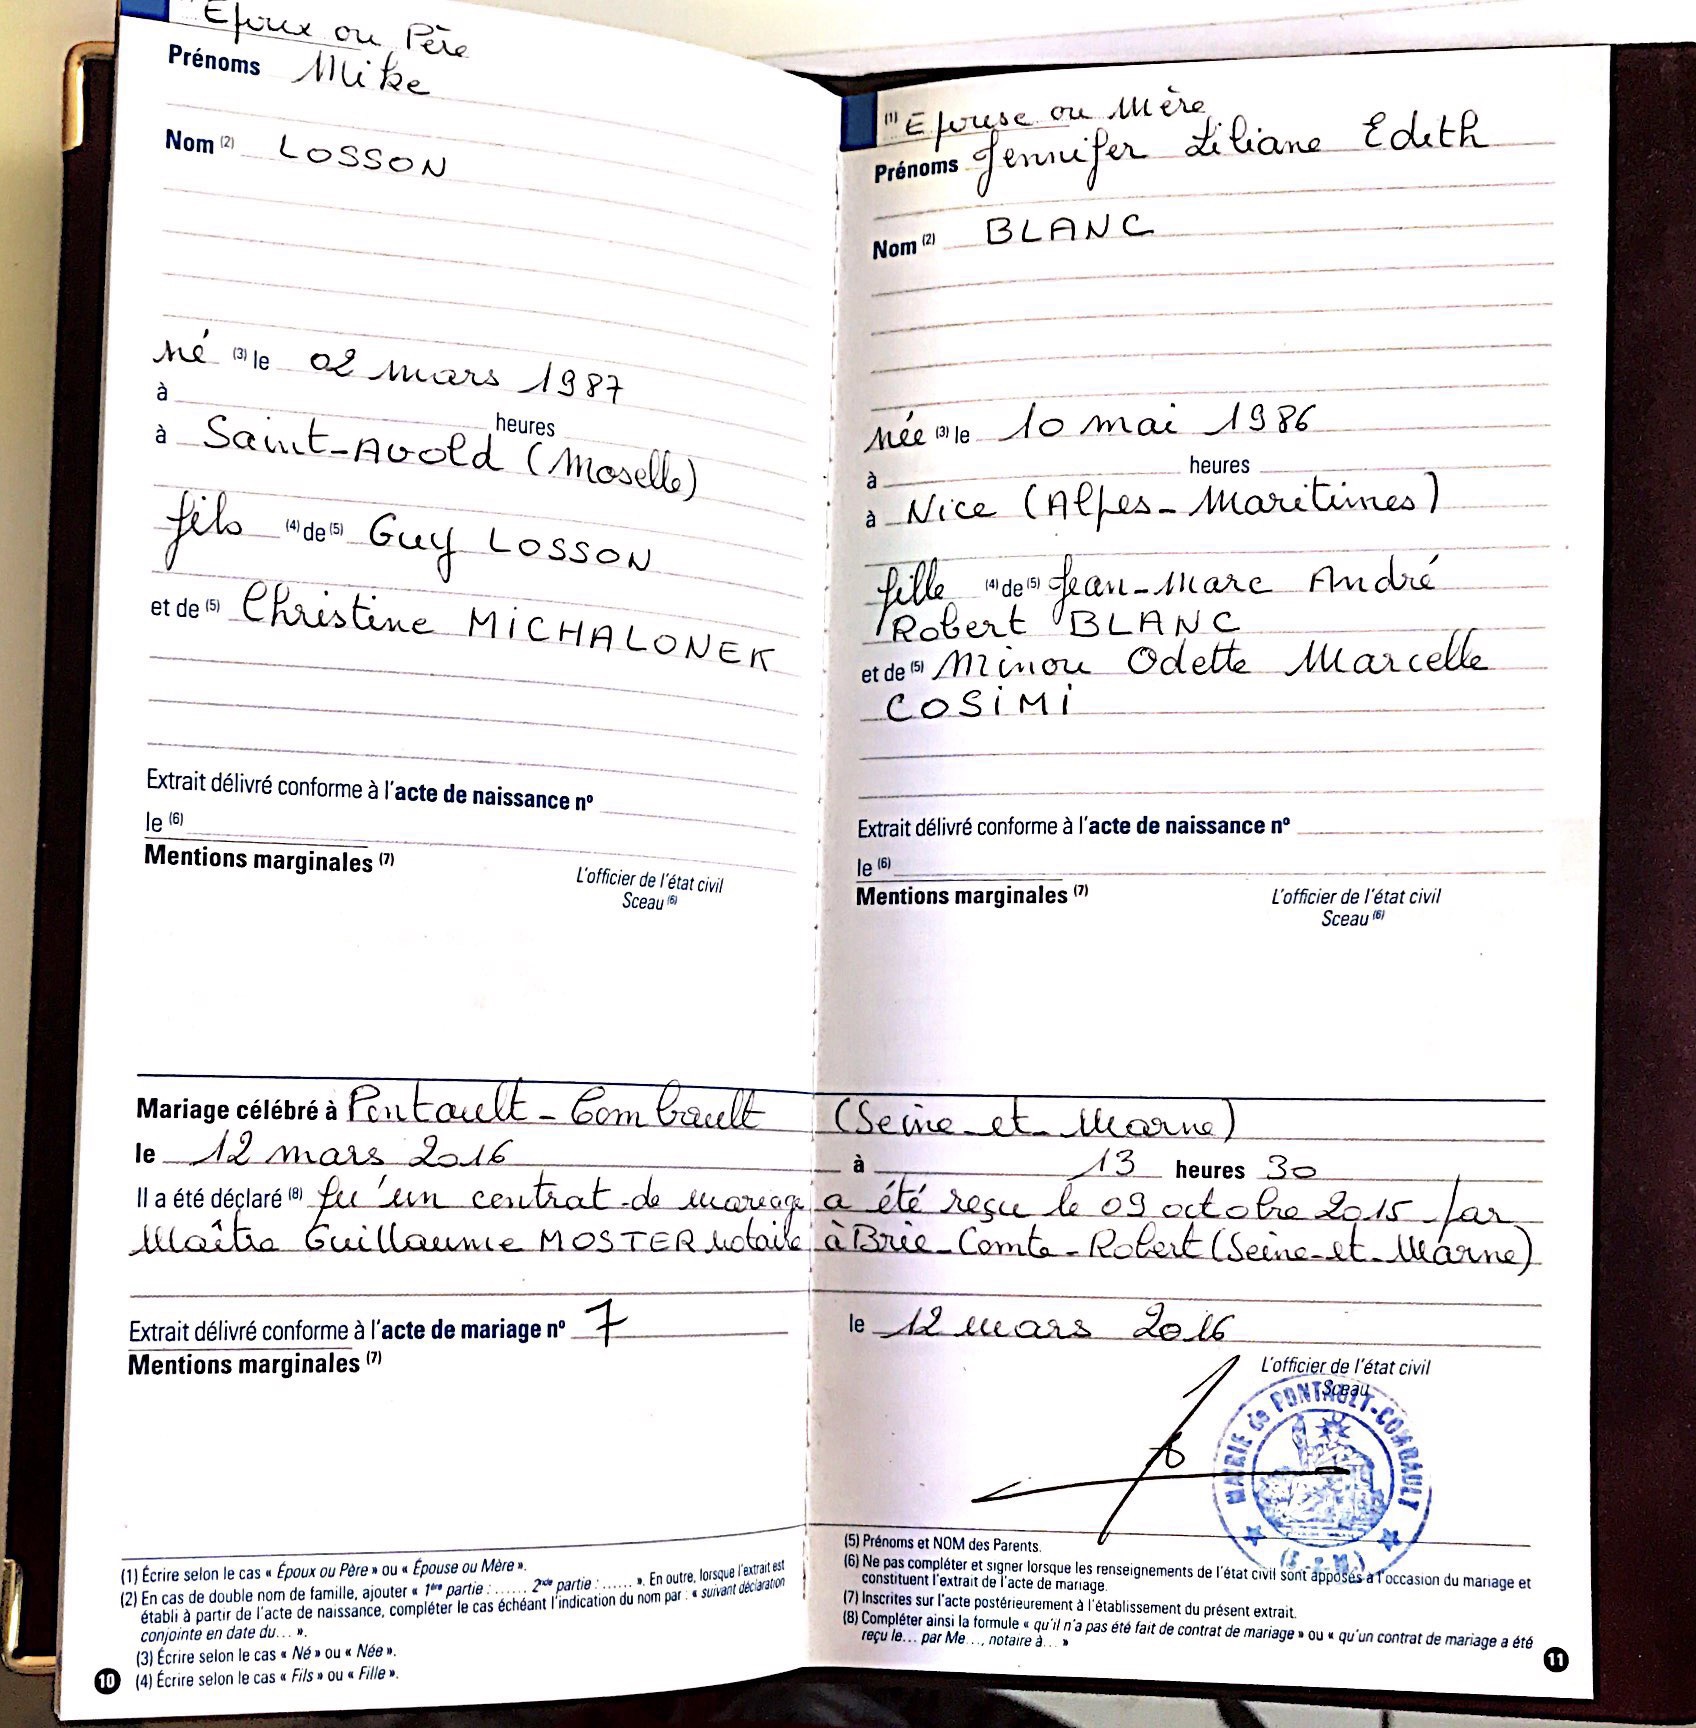 Epoux ou Père
Prénoms Mike
Nom (2) LOSSON
né (3) le 02 mars 1987
à heures
à Saint-Avold (Moselle)
fils (4) de (5) Guy LOSSON
et de (5) Christine MICHALONEK
Extrait délivré conforme à l'acte de naissance nº
le (6)
Mentions marginales (7)
L'officier de l'état civil
Sceau (6)
(1) Epouse ou Mère
Prénoms Jennifer Liliane Edith
Nom (2) BLANC
née (3) le 10 mai 1986
à heures
à Nice (Alpes-Maritimes)
fille (4) de (5) Jean-Marc André
Robert BLANC
et de (5) Minou Odette Marcelle
COSIMI
Extrait délivré conforme à l'acte de naissance nº
le (6)
Mentions marginales (7)
L'officier de l'état civil
Sceau (6)
Mariage célébré à Pontault-Combault (Seine-et-Marne)
le 12 mars 2016 à 13 heures 30
Il a été déclaré (8) qu'un contrat de mariage a été reçu le 09 octobre 2015 par
Maître Guillaume MOSTER notaire à Brie-Comte-Robert (Seine-et-Marne)
Extrait délivré conforme à l'acte de mariage nº 7 le 12 mars 2016
Mentions marginales (7)
L'officier de l'état civil
Sceau
MAIRIE de PONTAULT-COMBAULT
(S.-&-M.)
(1) Écrire selon le cas « Époux ou Père » ou « Épouse ou Mère ».
(2) En cas de double nom de famille, ajouter « 1ère partie : ...... 2nde partie : ...... ». En outre, lorsque l'extrait est
établi à partir de l'acte de naissance, compléter le cas échéant l'indication du nom par : « suivant déclaration
conjointe en date du... ».
(3) Écrire selon le cas « Né » ou « Née ».
(4) Écrire selon le cas « Fils » ou « Fille ».
10
(5) Prénoms et NOM des Parents.
(6) Ne pas compléter et signer lorsque les renseignements de l'état civil sont apposés à l'occasion du mariage et
constituent l'extrait de l'acte de mariage.
(7) Inscrites sur l'acte postérieurement à l'établissement du présent extrait.
(8) Compléter ainsi la formule « qu'il n'a pas été fait de contrat de mariage » ou « qu'un contrat de mariage a été
reçu le... par Me..., notaire à... »
11